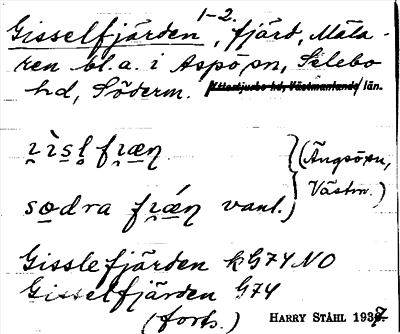 1-2.
Gisselfjärden, fjärd, Mäla-
ren bl.a. i Aspö sn, Selebo
hd, Söderm. Yttertjurbo hd, Västmanlands län.
(Ängsö sn,
Västm.)
sødra vanl.
Gisslefjärden kG74 NO
Gisselfjärden G74
(forts.) HARRY STÅHL 1937.